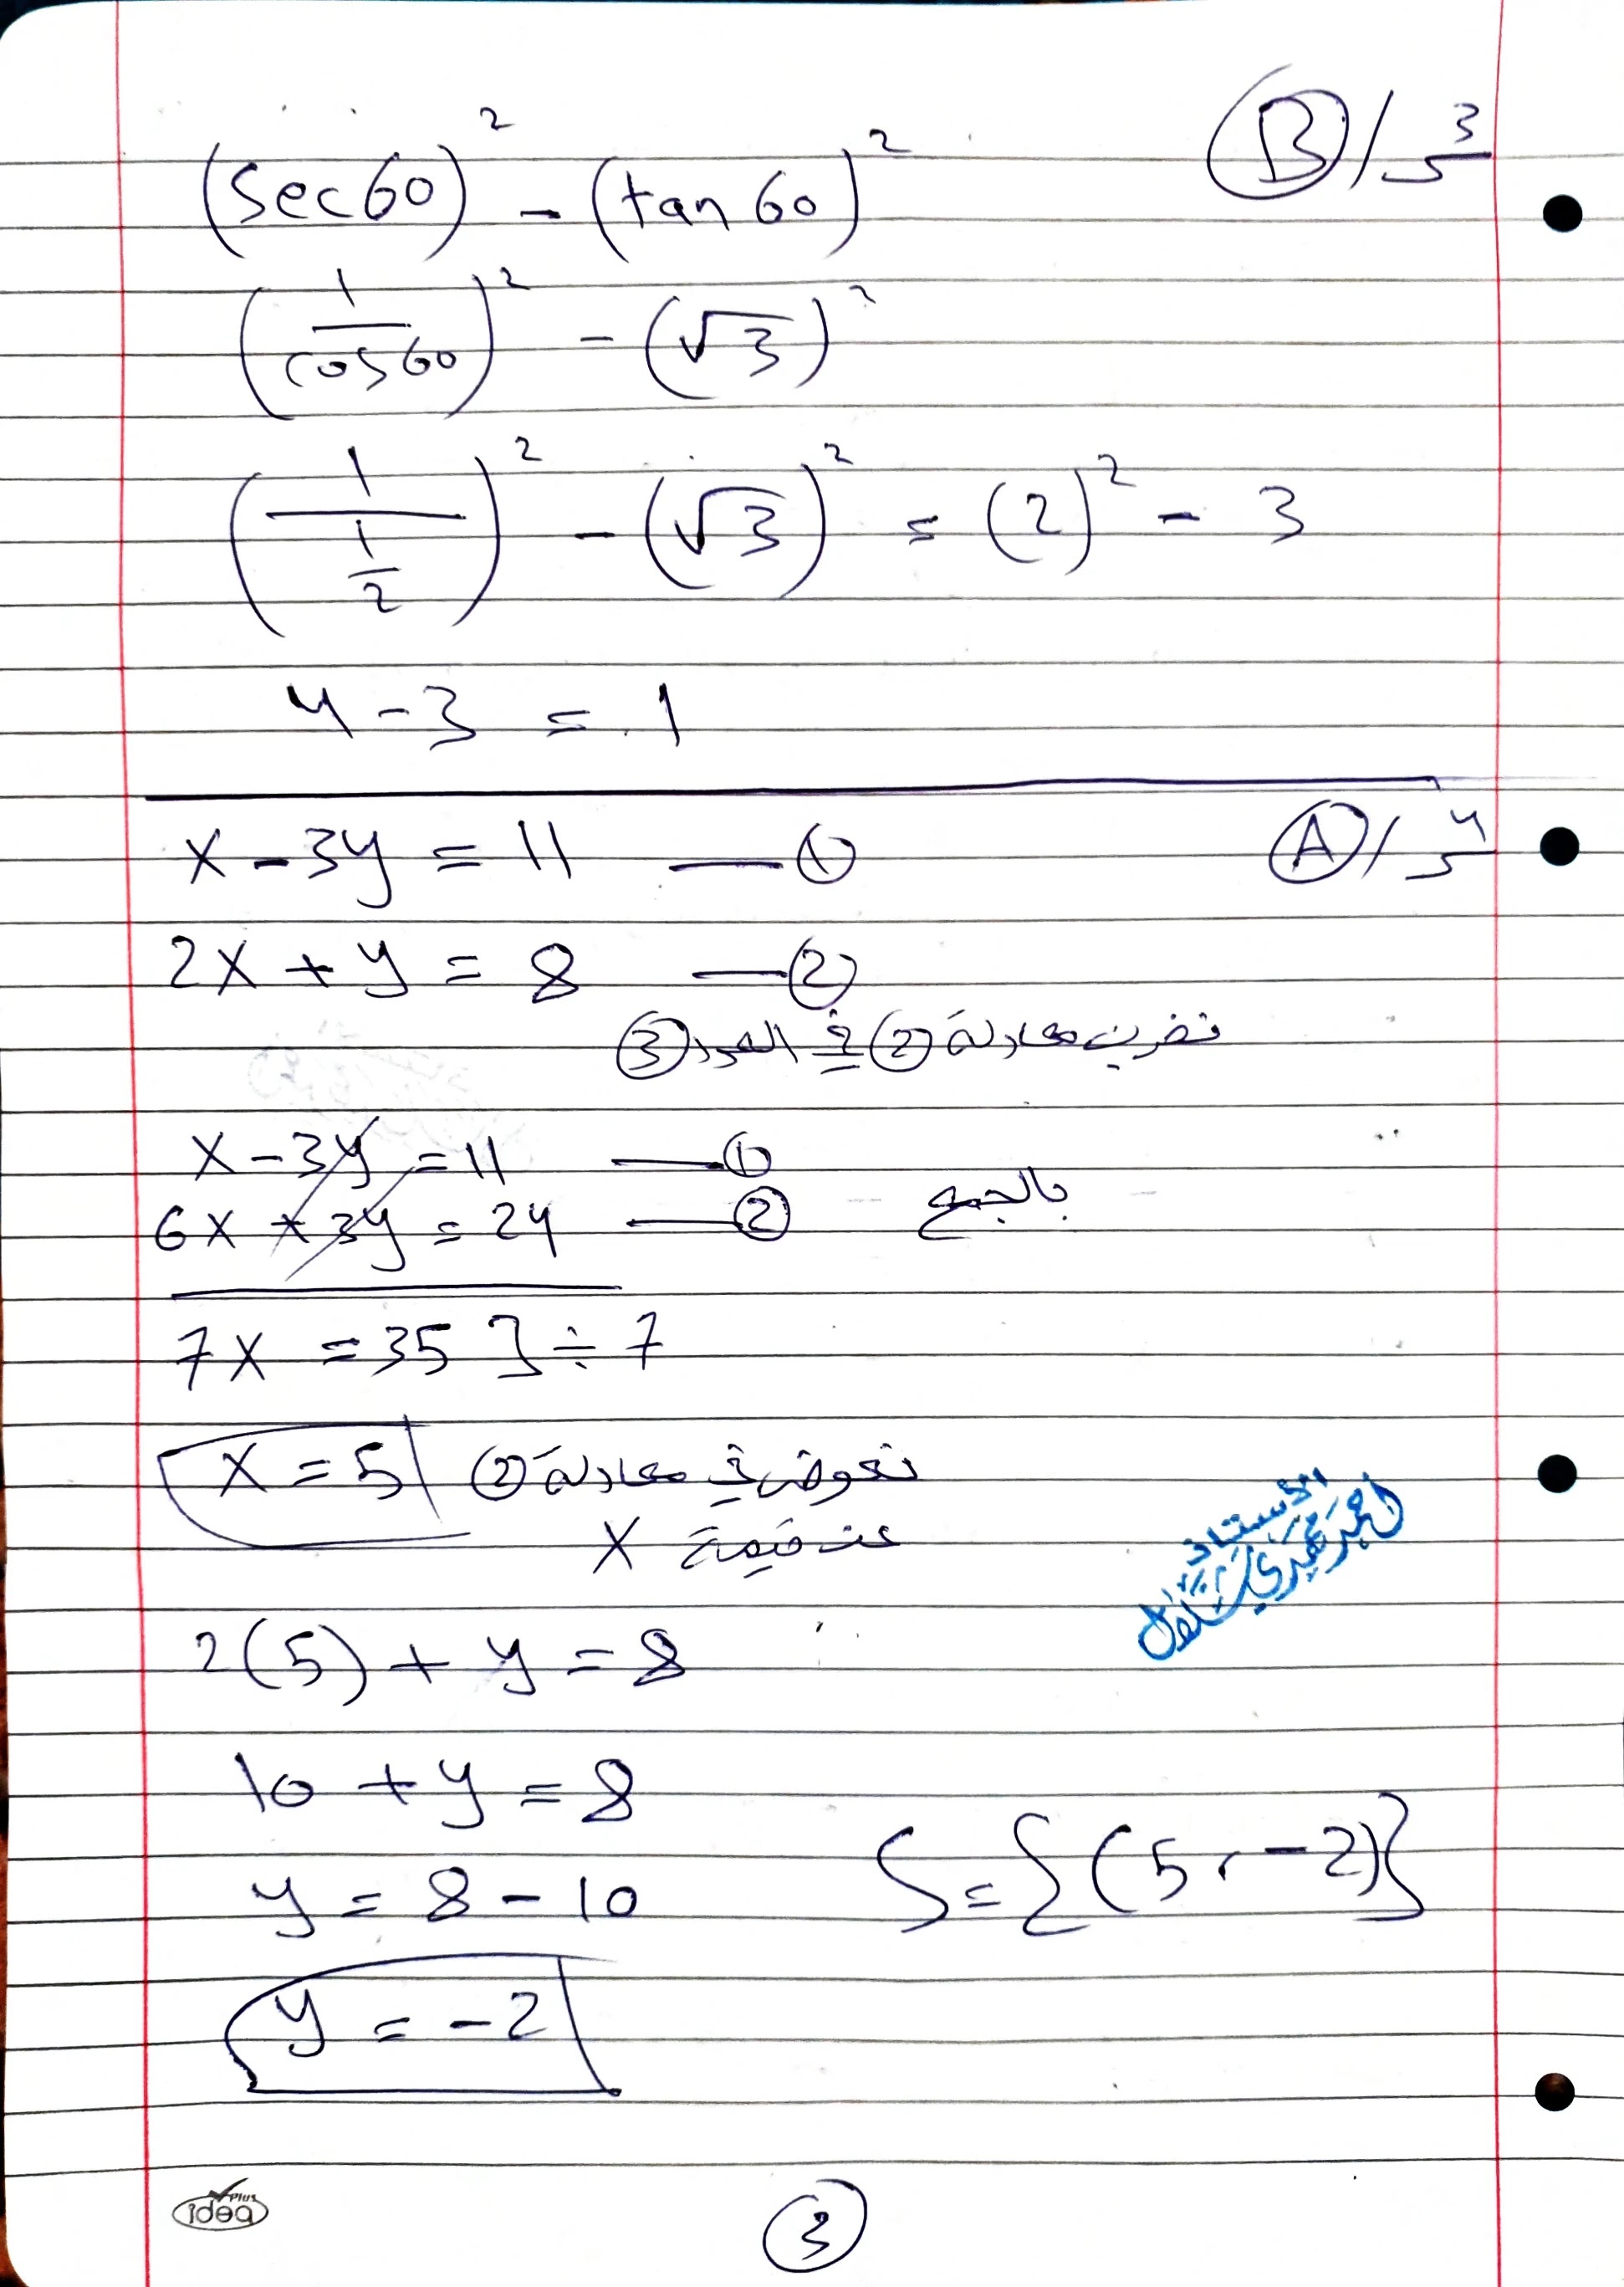 B / س3
(sec 60)² - (tan 60)²
(1/cos 60)² - (√3)²
(1/(1/2))² - (√3)² = (2)² - 3
4 - 3 = 1
A / س4
x - 3y = 11 — ①
2x + y = 8 — ②
نضرب معادلة ② في العدد ③
x - 3y = 11 — ①
6x + 3y = 24 — ②
بالجمع
7x = 35 ] ÷ 7
x = 5 نعوض في معادلة ②
عن قيمة x
الأستاذ
احمد حميدي
2(5) + y = 8
10 + y = 8
y = 8 - 10
S = {(5, -2)}
y = -2
idea Plus
③